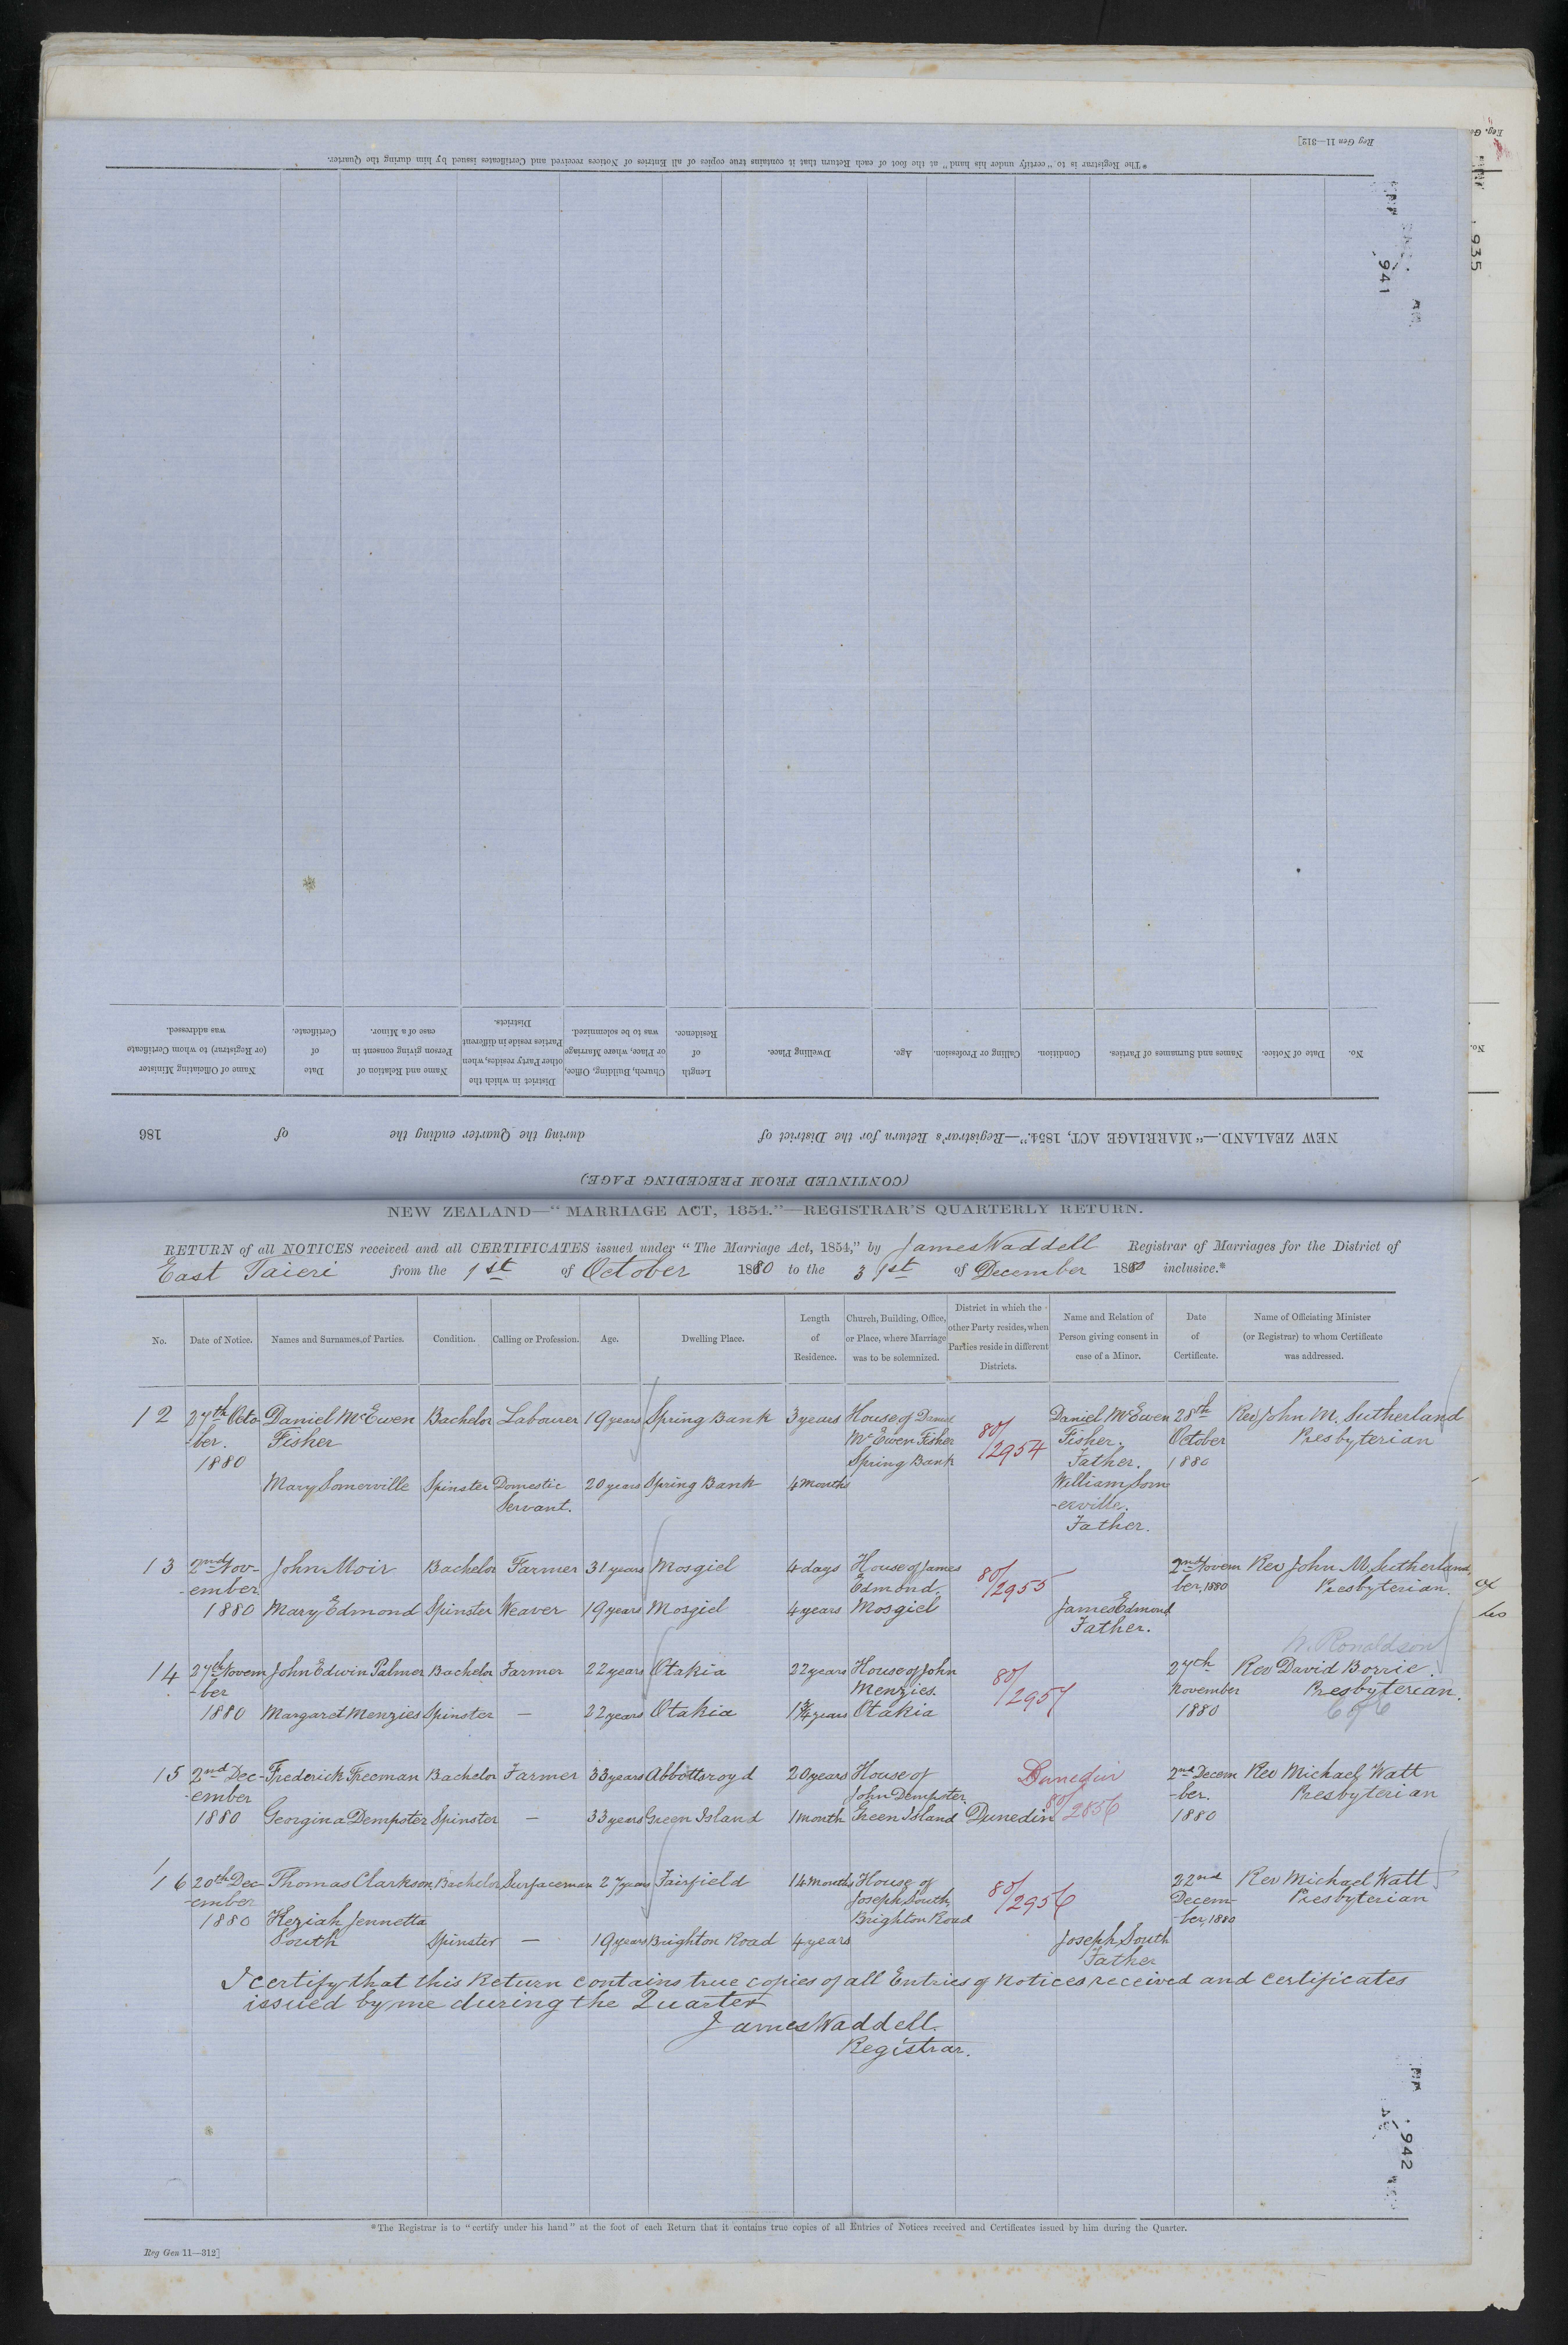 Reg Gen 11—312]
*The Registrar is to "certify under his hand" at the foot of each Return that it contains true copies of all Entries of Notices received and Certificates issued by him during the Quarter.
935
941
(CONTINUED FROM PRECEDING PAGE)
NEW ZEALAND.—"MARRIAGE ACT, 1854."—Registrar's Return for the District of during the Quarter ending the of 186
No. Date of Notice. Names and Surnames of Parties. Condition. Calling or Profession. Age. Dwelling Place. Length of Residence. Church, Building, Office, or Place, where Marriage was to be solemnized. District in which the other Party resides, when Parties reside in different Districts. Name and Relation of Person giving consent in case of a Minor. Date of Certificate. Name of Officiating Minister (or Registrar) to whom Certificate was addressed.
No.
NEW ZEALAND—"MARRIAGE ACT, 1854."—REGISTRAR'S QUARTERLY RETURN.
RETURN of all NOTICES received and all CERTIFICATES issued under "The Marriage Act, 1854," by James Waddell Registrar of Marriages for the District of
East Taieri from the 1st of October 1880 to the 31st of December 1880 inclusive.*
No. Date of Notice. Names and Surnames of Parties. Condition. Calling or Profession. Age. Dwelling Place. Length of Residence. Church, Building, Office, or Place, where Marriage was to be solemnized. District in which the other Party resides, when Parties reside in different Districts. Name and Relation of Person giving consent in case of a Minor. Date of Certificate. Name of Officiating Minister (or Registrar) to whom Certificate was addressed.
12 27th Octo- Daniel McEwen Bachelor Labourer 19 years Spring Bank 3 years House of Daniel Daniel McEwen 28th Rev John M. Sutherland
-ber. Fisher McEwen Fisher 80/2954 Fisher. October Presbyterian
1880 Spring Bank Father. 1880
Mary Somerville Spinster Domestic 20 years Spring Bank 4 months William Som
Servant. -erville.
Father.
13 2nd Nov- John Moir Bachelor Farmer 31 years Mosgiel 4 days House of James 80/2955 2nd Novem Rev John M. Sutherland,
-ember Edmond, ber, 1880 Presbyterian.
1880 Mary Edmond Spinster Weaver 19 years Mosgiel 4 years Mosgiel James Edmond
Father.
W. Ronaldson
14 27th Novem John Edwin Palmer Bachelor Farmer 22 years Otakia 22 years House of John 80/2957 27th Rev David Borrie.
-ber Menzies. November Presbyterian.
1880 Margaret Menzies Spinster — 22 years Otakia 1¾ years Otakia 1880 C of E
15 2nd Dec- Frederick Freeman Bachelor Farmer 33 years Abbottsroyd 20 years House of Dunedin 2nd Decem Rev Michael Watt
-ember John Dempster, 80/2856 -ber. Presbyterian
1880 Georgina Dempster Spinster — 33 years Green Island 1 month Green Island Dunedin 1880
16 20th Dec- Thomas Clarkson Bachelor Surfaceman 27 years Fairfield 14 months House of 80/2956 22nd Rev Michael Watt
-ember Joseph South, Decem- Presbyterian
1880 Keziah Jennetta Brighton Road -ber, 1880
South Spinster — 19 years Brighton Road 4 years Joseph South
Father
I certify that this Return contains true copies of all Entries of Notices received and certificates
issued by me during the Quarter
James Waddell.
Registrar.
942
*The Registrar is to "certify under his hand" at the foot of each Return that it contains true copies of all Entries of Notices received and Certificates issued by him during the Quarter.
Reg Gen 11—312]